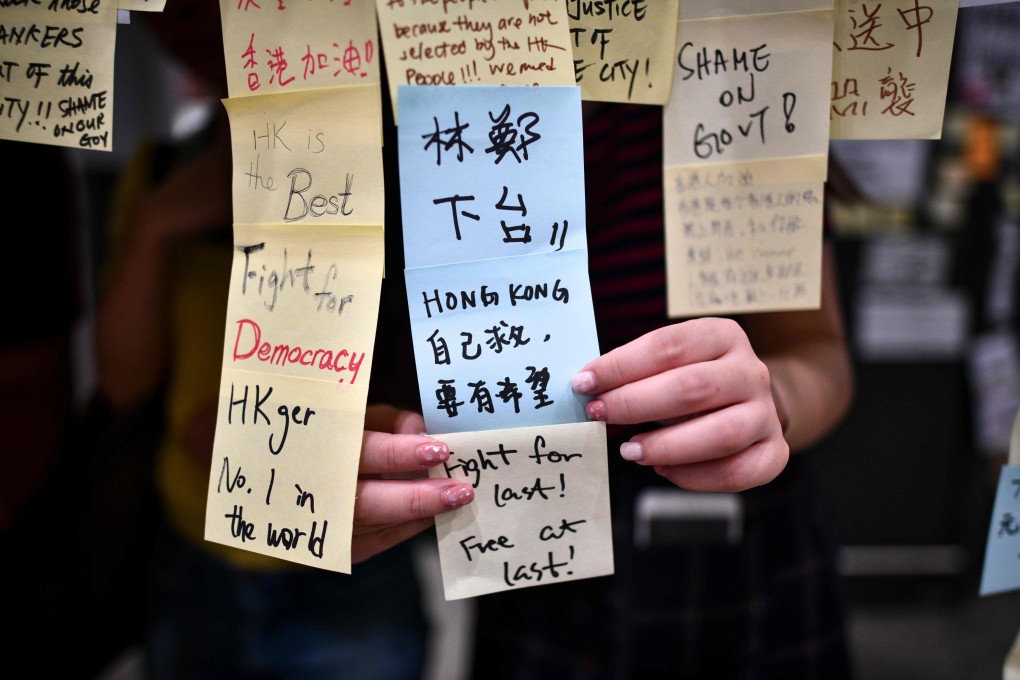 ANKERS
T OF this
TY!! SHAME
ON OUR
GOV
香港加油!
HK is
the Best
Fight for
Democracy
HKger
No. 1 in
the world
because they are not
selected by the HK
People!!! we need
林鄭
下台!!
HONG KONG
自己救,
要有希望
Fight for
last!
Free at
last!
JUSTICE
T OF
E CITY!
SHAME
ON
GOVT!
香港人加油
送中
恐襲